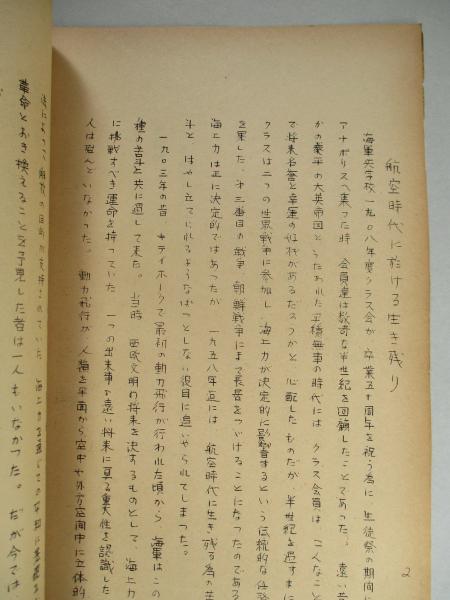 航空時代に於ける生き残り
海軍兵学校一九〇八年度クラス会が 卒業五十周年を祝う為に 生徒祭の期間に
アナポリスへ集った時 会員達は数奇な半世紀を回顧したことであった。 遠い昔
かの泰平の大英帝国とうたわれた平穏無事の時代には クラス会員は こんなこと
で将来名誉と幸運の任務があるだろうかと 心配したものだが 半世紀を過すまに
クラスは二つの世界戦争に参加し 海上力が決定的に影響するという伝統的な任務
を果した。 第三番目の戦争 朝鮮戦争にまで長居をつづけることになったのである
海上力は正に決定的ではあったが 一九五八年迄には 航空時代に生き残る為の苦
斗と はやし立てられるようなぱっとしない役目に追いやられてしまった。
一九〇三年の昔 キティホークで最初の動力飛行が行われた頃から 海軍はこの
種の苦斗と共に過して来た。 当時 西欧文明の将来を決するものとして 海上力
に挑戦すべき運命を持っていた 一つの出来事の遠い将来に亘る重大性を認識した
人は殆んどいなかった。 動力飛行が 人類を平面から空中や外方空間中に立体的
2
革命とおき換えることを予見した者は一人もいなかった。 だが今では